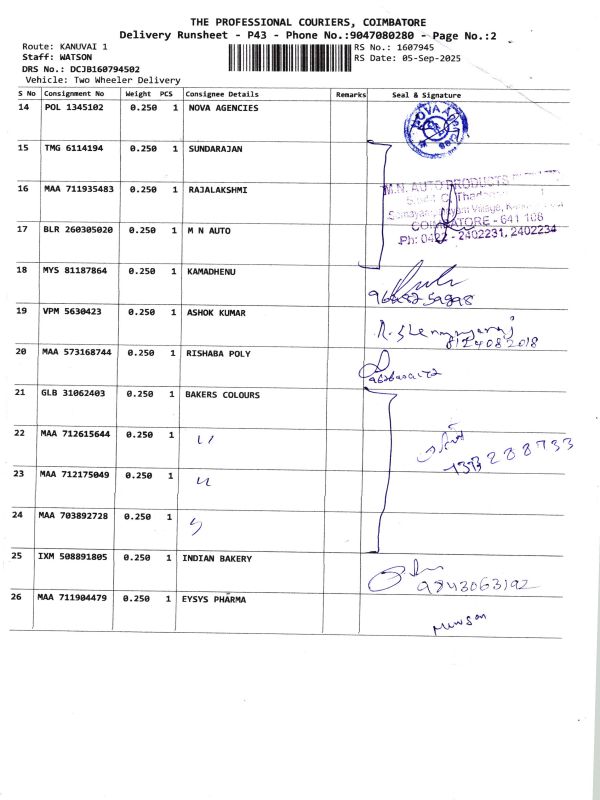 THE PROFESSIONAL COURIERS, COIMBATORE
Delivery Runsheet - P43 - Phone No.:9047080280 - Page No.:2
Route: KANUVAI 1
RS No.: 1607945
Staff: WATSON
RS Date: 05-Sep-2025
DRS No.: DCJB160794502
Vehicle: Two Wheeler Delivery
S No Consignment No Weight PCS Consignee Details Remarks Seal & Signature
14 POL 1345102 0.250 1 NOVA AGENCIES
15 TMG 6114194 0.250 1 SUNDARAJAN
16 MAA 711935483 0.250 1 RAJALAKSHMI
M.N. AUTO PRODUCTS
COIMBATORE - 641 108
Ph: 0422 - 2402231, 2402234
17 BLR 260305020 0.250 1 M N AUTO
18 MYS 81187864 0.250 1 KAMADHENU
19 VPM 5630423 0.250 1 ASHOK KUMAR
8124082018
20 MAA 573168744 0.250 1 RISHABA POLY
21 GLB 31062403 0.250 1 BAKERS COLOURS
22 MAA 712615644 0.250 1 "
23 MAA 712175049 0.250 1 "
24 MAA 703892728 0.250 1 "
25 IXM 508891805 0.250 1 INDIAN BAKERY
9843063192
26 MAA 711904479 0.250 1 EYSYS PHARMA